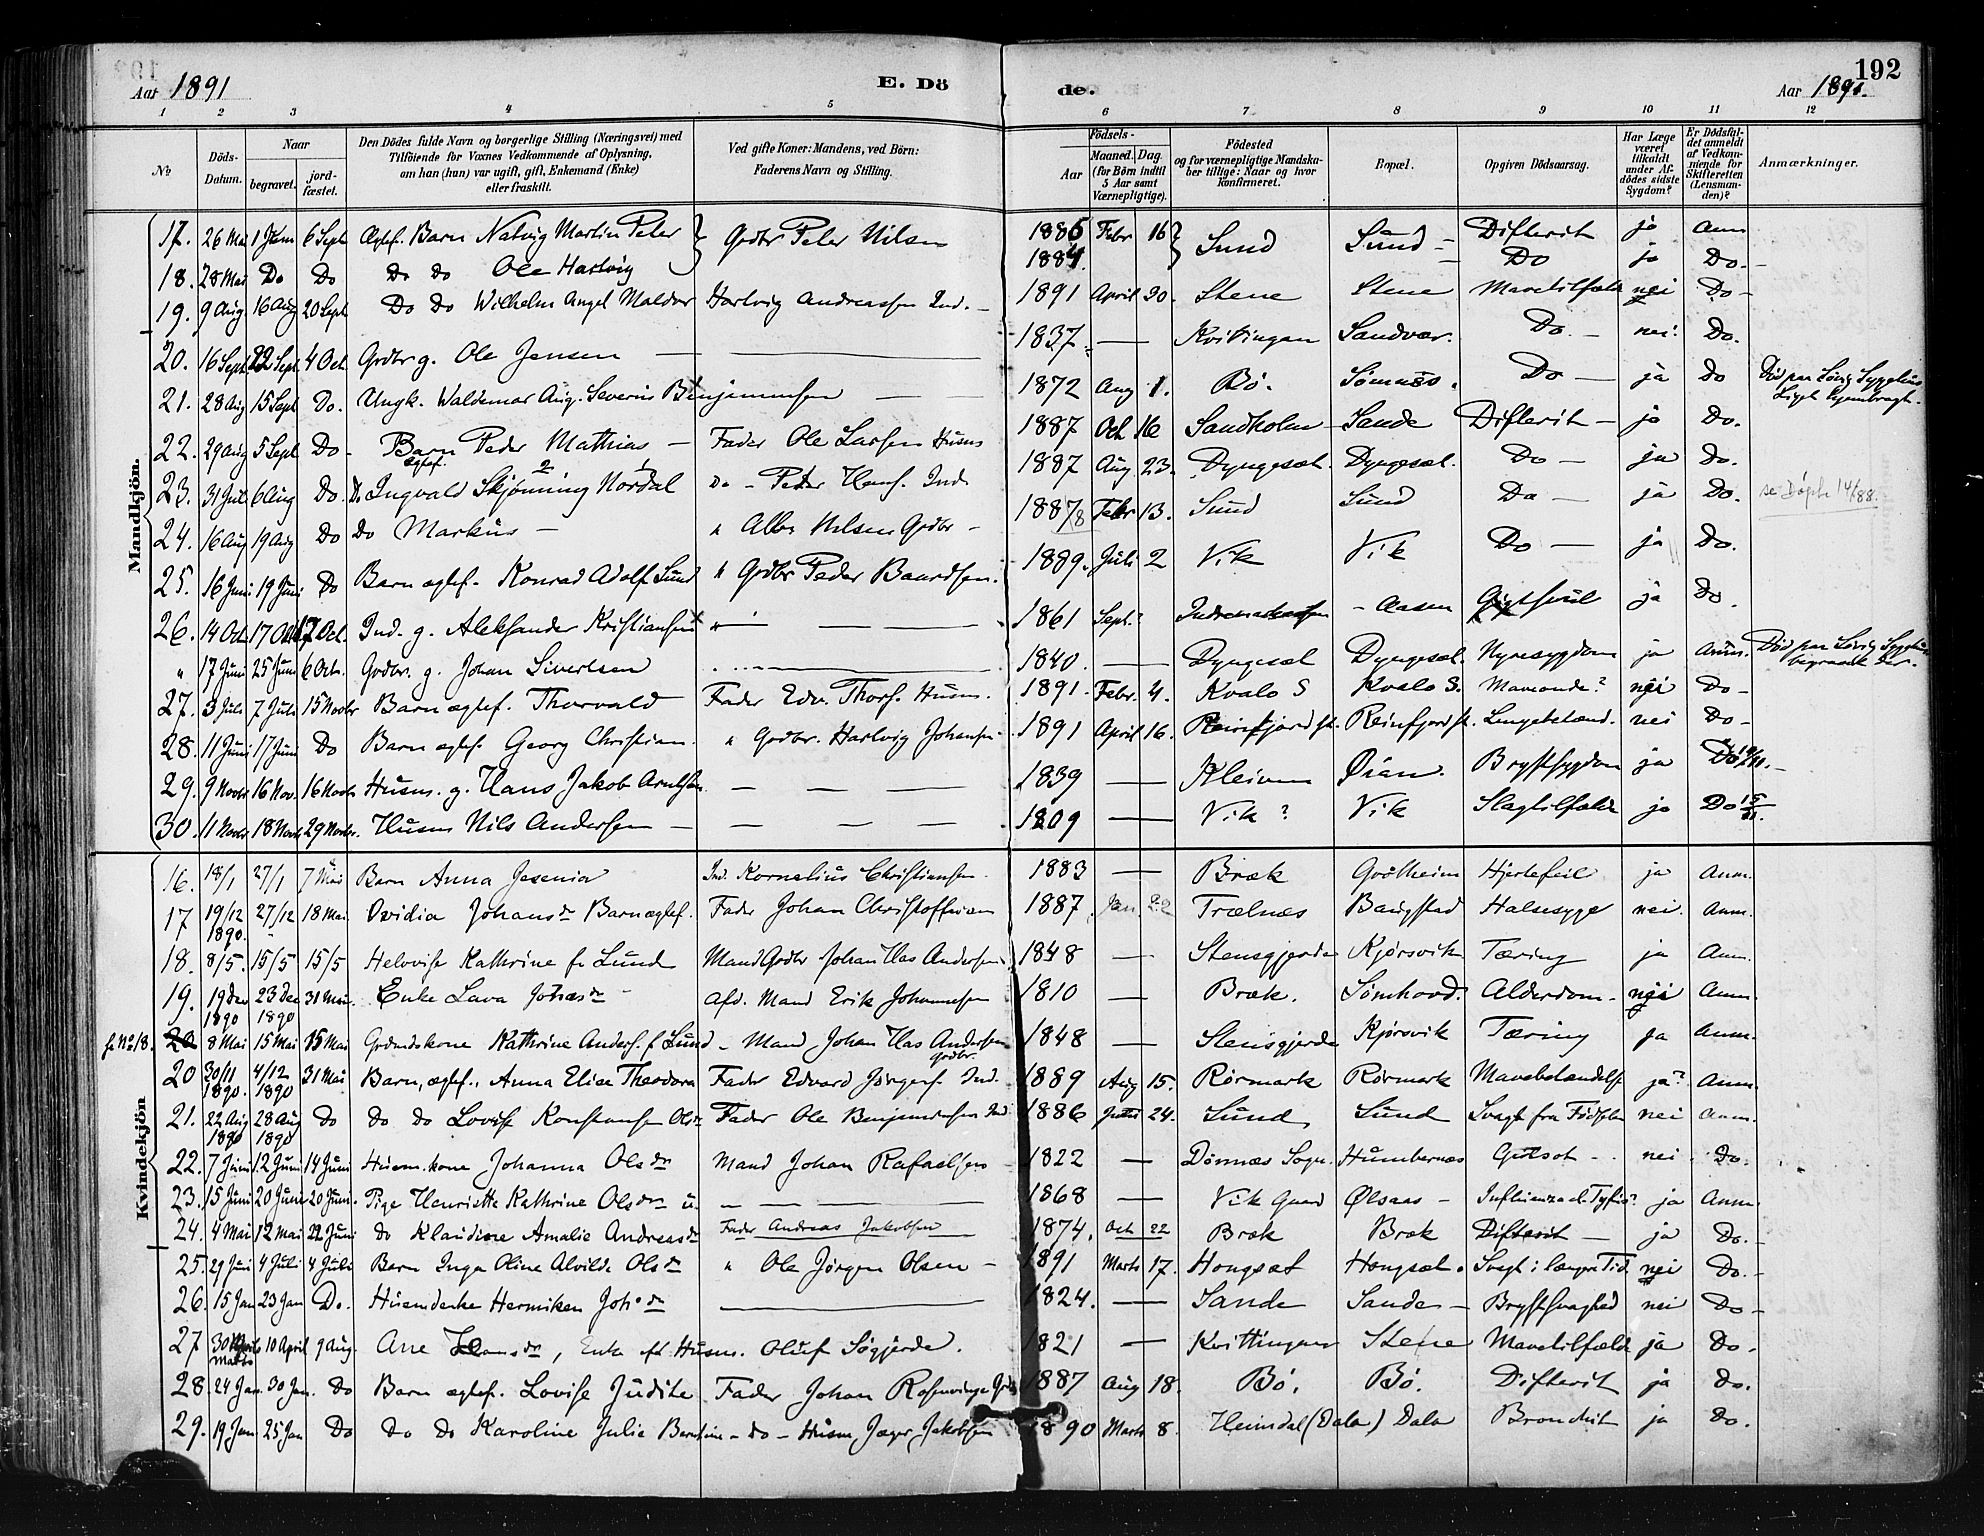 192
Aar 1891
E. Dö
de.
Aar 1891.
1 2 3 4 5 6 7 8 9 10 11 12
№
Döds-Datum.
Naar
begravet.
jord-fæstet.
Den Dödes fulde Navn og borgerlige Stilling (Næringsvei) med
Tilföiende for Voxnes Vedkommende af Oplysning,
om han (hun) var ugift, gift, Enkemand (Enke)
eller fraskilt.
Ved gifte Koner: Mandens, ved Börn:
Faderens Navn og Stilling.
Födsels-
Aar
Maaned. Dag.
(for Börn indtil
5 Aar samt
Værnepligtige).
Födested
og for værnepligtige Mandska-
ber tillige: Naar og hvor
konfirmeret.
Bopæl.
Opgiven Dödsaarsag.
Har Læge
været
tilkaldt
under Af-
dödes sidste
Sygdom?
Er Dödsfal-
det anmeldt
af Vedkom-
mende for
Skifteretten
(Lensman-
den)?
Anmærkninger.
Mandkjön.
17. 26 Mai 1 Juni 6 Sept Ægtef. Barn Natvig Martin Peter Grdbr Peter Nilsen 1885 Febr 16 Sund Sund Difterit ja Anm
18. 28 Mai Do Do Do Do Ole Hartvig 1884. Do ja Do.
19. 9 Aug 16 Aug 20 Sept Do Do Wilhelm Angel Maldvær Hartvig Andreassen Ind. 1891 April 30. Stene Stene Mavetilfælde nei Do
20. 16 Sept 22 Sept 4 Oct. Grdbr g. Ole Jensen 1837. Kvitingen Sandvær. Do nei Do.
21. 28 Aug 15 Sept Do. Ungk. Waldemar Aug. Severin Benjaminsen 1872 Aug 1. Bö. Sömnes. Do ja Do Död paa Lövig Sygehus
Liget hjembragt.
22. 29 Aug 5 Sept Do Barn Peder Mathias Fader Ole Larsen Husm 1887 Oct 16 Sandholm Sande Difterit ja Do.
ægtef.
23. 31 Juli 6 Aug Do. Do Ingvald Skjönning Nordal Do Peder Hans. Ind. 1887 Aug 23. Dyngesæt. Dyngesæt. Do ja Do.
24. 16 Aug 19 Aug Do Do Markus " Albr Nilsen Grdbr 1887/8 Febr 13. Sund Sund Do ja Do. se Döpte 14/88.
25. 16 Juni 19 Juni Do Barn ægtef. Konrad Adolf Sund " Grdbr Peder Baardsen. 1889. Juli 2 Vik Vik Do ja Do.
26. 14 Oct. 17 Oct 17 Oct. Ind. g. Aleksander Kristiansen 1861 Sept. Aasen ja Do.
" 17 Juni 25 Juni 6 Octr. Grdbr. g. Johan Sivertsen 1840. Dyngesæt Dyngesæt. Nyresygdom ja Anm. Död paa Lövig Sygehus
begravet der.
27. 3 Juli 7 Juli 15 Novbr Barn ægtef. Thorvald Fader Edv. Thors. Husm. 1891. Febr. 4. Kvalo S Kvalo S. Maveonde? nei Do
28. 11 Juni 17 Juni Do Barn ægtef. Georg Christian " Grdbr. Hartvig Johansen. 1891 April 16. Reinfjord st. Reinfjord st. Lungebetænd. nei Do
29. 9 Novbr 16 Nov. 16 Novbr Husm. g. Hans Jakob Arntsen 1839 Kleiven Öian. Brystsygdom ja Do
30. 11 Novbr 18 Novbr 29 Novbr. Husm Nils Andersen 1809 Vik? Vik Slagtilfælde ja Do
Kvindekjön
16. 18/1 27/1 7 Mai Barn Anna Jesenia Ind. Kornelius Christiansen. 1883 Bræk Gröttheim Hjertefeil ja Anm.
17 19/12 1890. 27/12 18 Mai Ovidia Johansdr Barn ægtef. Fader Johan Christoffersen 1887 Jan 22 Trælnæs Baugstad Halssyge nei. Anm.
18. 8/5. 15/5 15/5 Helovise Kathrine f. Lund Mand Grdbr Johan Has Andersen. 1848 Stensgjerde Kjørsvik Tæring ja Anm.
19. 19 Dec 1890 23 Dec 1890 31 Mai. Enke Lava Johansdr Afd. Mand Erik Johannesen 1810 Bræk. Sömhovd. Alderdom nei Anm.
se No 18. 20 8 Mai 15 Mai 15 Mai Grdmdskone Kathrine Anders. f. Lund Mand Johan Has Andersen grdbr. 1848 Stensgjerde Kjørsvik Tæring ja Anm.
20 30/11 1890. 4/12 1890 31 Mai Barn, ægtef., Anna Elise Theodora Fader Edvard Jörgens. Ind. 1889 Aug 15. Rörmark Rörmark Mavebetændelse ja? Anm.
21. 22 Aug 1890 28 Aug 1890 Do Do Do Lovise Konstanse Olsdr Fader Ole Benjaminsen Ind 1886 Juni 24. Sund Sund Svagt fra Fødselen nei Anm.
22. 7 Juni 12 Juni 14 Juni Husm.kone Johanna Olsdr Mand Johan Rafaelsen 1822 Dönnæs Sogn. Humbernæs Gulsot nei Do.
23. 15 Juni 20 Juni 20 Juni. Pige Henriette Kathrine Olsdr u. 1868 Vik Gaard Ölsaas Influenza el. Tyfus? ja Anm
24. 4 Mai 12 Mai 22 Juni Do Klaudine Amalie Andreasdr Fader Andreas Jakobsen 1874. Oct 22 Bræk Bræk Difterit ja Do.
25. 29 Juni 4 Juli 4 Juli Barn Inga Oline Alvilde Olsdr " Ole Jörgen Olsen 1891 Marts 17. Hongsæt Hongsæt. Svagt i længre Tid. nei Do.
26. 15 Jan 23 Jan Do. Husmdenke Herniken Johsdr 1824. Sande Sande Brystsvaghed nei Do
27 30 Marts 10 April 9 Aug. Ane Hansdr, Enke eft Husm. Oluf Søgjerde. 1821 Kvittingen Stene Mavetilfælde ja Do.
28. 24 Jan 30 Jan. Do Barn ægtef. Lovise Judite Fader Johan Rosenvinge 1887 Aug 18. Bö. Bö. Difterit ja Do.
29. 19 Jan 25 Jan Do Do Do Karoline Julie Berntine do Husm Jæger Jakobsen 1890 Marts 8. Heimdal (Dala) Dala Bronchit ja Do.